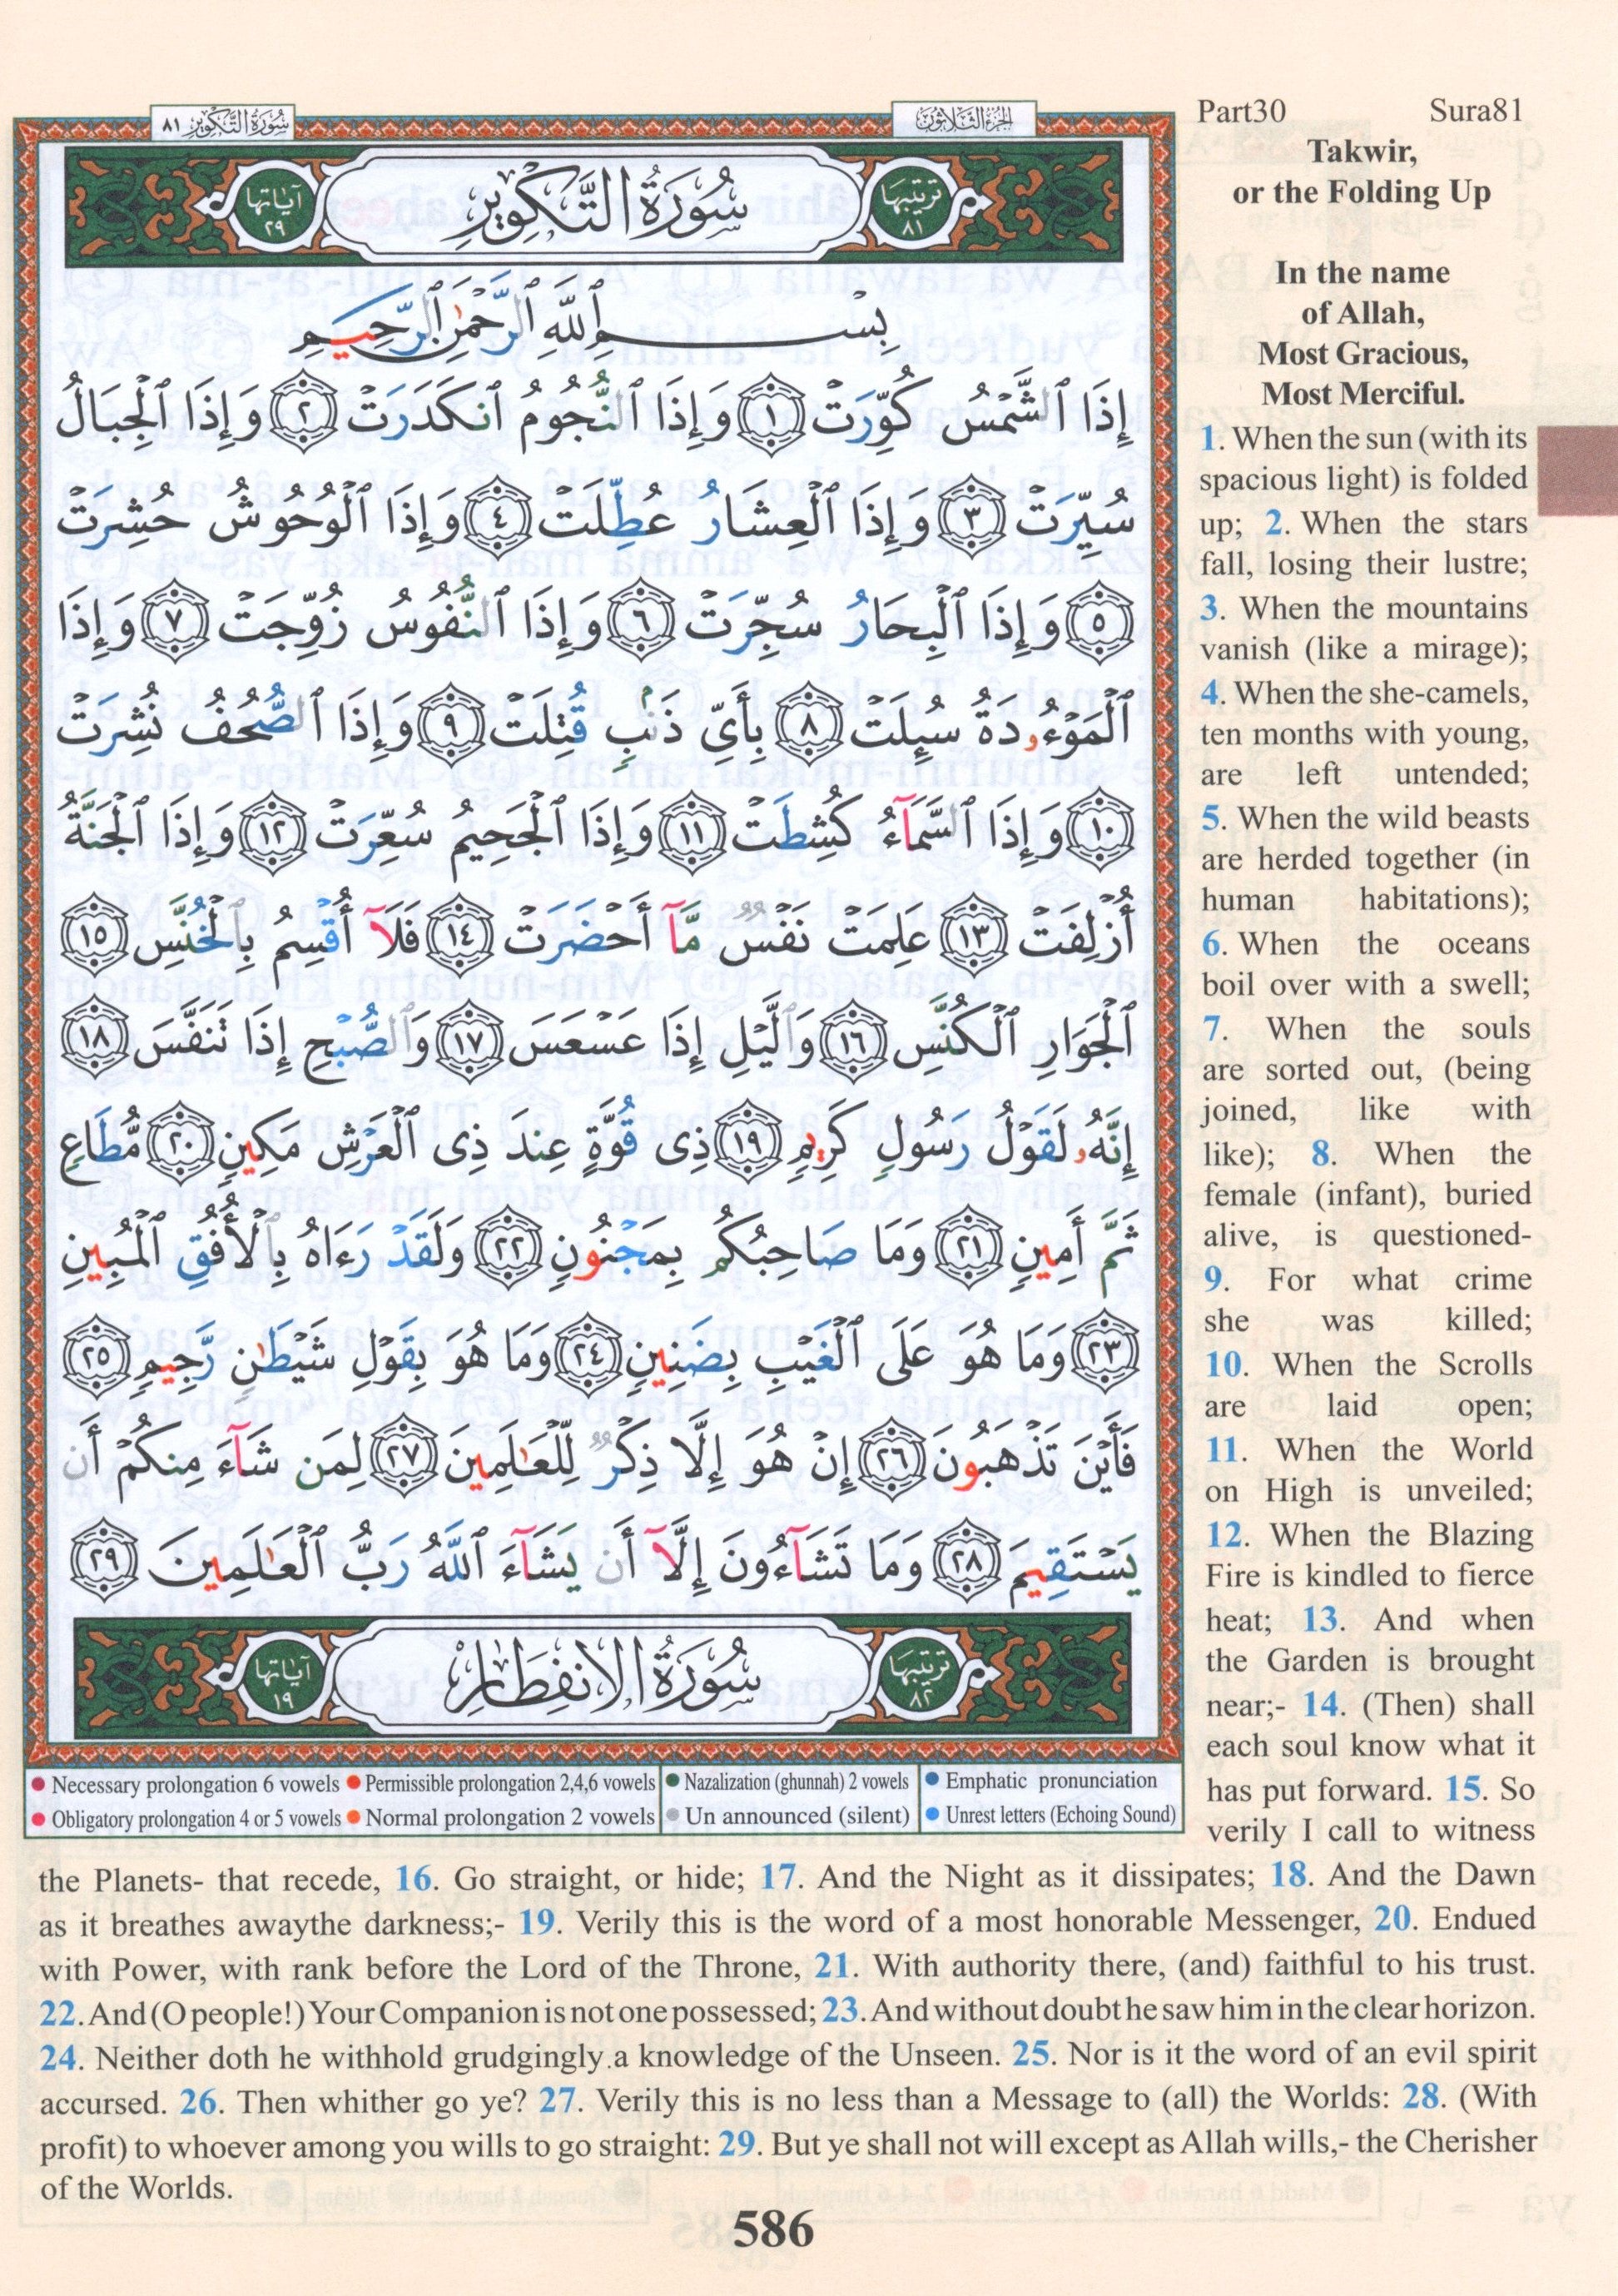 سُورَةُ التَّكْوِيرِ ٨١
الجُزْءُ الثَّلَاثُونَ
Part30 Sura81
آيَاتُهَا ٢٩
سُورَةُ التَّكْوِيرِ
تَرْتِيبُهَا ٨١
بِسْمِ ٱللَّهِ ٱلرَّحْمَٰنِ ٱلرَّحِيمِ
إِذَا ٱلشَّمْسُ كُوِّرَتْ ١ وَإِذَا ٱلنُّجُومُ ٱنكَدَرَتْ ٢ وَإِذَا ٱلْجِبَالُ
سُيِّرَتْ ٣ وَإِذَا ٱلْعِشَارُ عُطِّلَتْ ٤ وَإِذَا ٱلْوُحُوشُ حُشِرَتْ
٥ وَإِذَا ٱلْبِحَارُ سُجِّرَتْ ٦ وَإِذَا ٱلنُّفُوسُ زُوِّجَتْ ٧ وَإِذَا
ٱلْمَوْءُۥدَةُ سُئِلَتْ ٨ بِأَىِّ ذَنۢبٍ قُتِلَتْ ٩ وَإِذَا ٱلصُّحُفُ نُشِرَتْ
١٠ وَإِذَا ٱلسَّمَآءُ كُشِطَتْ ١١ وَإِذَا ٱلْجَحِيمُ سُعِّرَتْ ١٢ وَإِذَا ٱلْجَنَّةُ
أُزْلِفَتْ ١٣ عَلِمَتْ نَفْسٌ مَّآ أَحْضَرَتْ ١٤ فَلَآ أُقْسِمُ بِٱلْخُنَّسِ ١٥
ٱلْجَوَارِ ٱلْكُنَّسِ ١٦ وَٱلَّيْلِ إِذَا عَسْعَسَ ١٧ وَٱلصُّبْحِ إِذَا تَنَفَّسَ ١٨
إِنَّهُۥ لَقَوْلُ رَسُولٍ كَرِيمٍ ١٩ ذِى قُوَّةٍ عِندَ ذِى ٱلْعَرْشِ مَكِينٍ ٢٠ مُّطَاعٍ
ثَمَّ أَمِينٍ ٢١ وَمَا صَاحِبُكُم بِمَجْنُونٍ ٢٢ وَلَقَدْ رَءَاهُ بِٱلْأُفُقِ ٱلْمُبِينِ
٢٣ وَمَا هُوَ عَلَى ٱلْغَيْبِ بِضَنِينٍ ٢٤ وَمَا هُوَ بِقَوْلِ شَيْطَٰنٍ رَّجِيمٍ ٢٥
فَأَيْنَ تَذْهَبُونَ ٢٦ إِنْ هُوَ إِلَّا ذِكْرٌ لِّلْعَٰلَمِينَ ٢٧ لِمَن شَآءَ مِنكُمْ أَن
يَسْتَقِيمَ ٢٨ وَمَا تَشَآءُونَ إِلَّآ أَن يَشَآءَ ٱللَّهُ رَبُّ ٱلْعَٰلَمِينَ ٢٩
آيَاتُهَا ١٩
سُورَةُ الانفِطَارِ
تَرْتِيبُهَا ٨٢
Necessary prolongation 6 vowels Permissible prolongation 2,4,6 vowels Nazalization (ghunnah) 2 vowels Emphatic pronunciation
Obligatory prolongation 4 or 5 vowels Normal prolongation 2 vowels Un announced (silent) Unrest letters (Echoing Sound)
Takwir,
or the Folding Up
In the name
of Allah,
Most Gracious,
Most Merciful.
1. When the sun (with its
spacious light) is folded
up; 2. When the stars
fall, losing their lustre;
3. When the mountains
vanish (like a mirage);
4. When the she-camels,
ten months with young,
are left untended;
5. When the wild beasts
are herded together (in
human habitations);
6. When the oceans
boil over with a swell;
7. When the souls
are sorted out, (being
joined, like with
like); 8. When the
female (infant), buried
alive, is questioned-
9. For what crime
she was killed;
10. When the Scrolls
are laid open;
11. When the World
on High is unveiled;
12. When the Blazing
Fire is kindled to fierce
heat; 13. And when
the Garden is brought
near;- 14. (Then) shall
each soul know what it
has put forward. 15. So
verily I call to witness
the Planets- that recede, 16. Go straight, or hide; 17. And the Night as it dissipates; 18. And the Dawn
as it breathes awaythe darkness;- 19. Verily this is the word of a most honorable Messenger, 20. Endued
with Power, with rank before the Lord of the Throne, 21. With authority there, (and) faithful to his trust.
22. And (O people!) Your Companion is not one possessed; 23. And without doubt he saw him in the clear horizon.
24. Neither doth he withhold grudgingly.a knowledge of the Unseen. 25. Nor is it the word of an evil spirit
accursed. 26. Then whither go ye? 27. Verily this is no less than a Message to (all) the Worlds: 28. (With
profit) to whoever among you wills to go straight: 29. But ye shall not will except as Allah wills,- the Cherisher
of the Worlds.
586